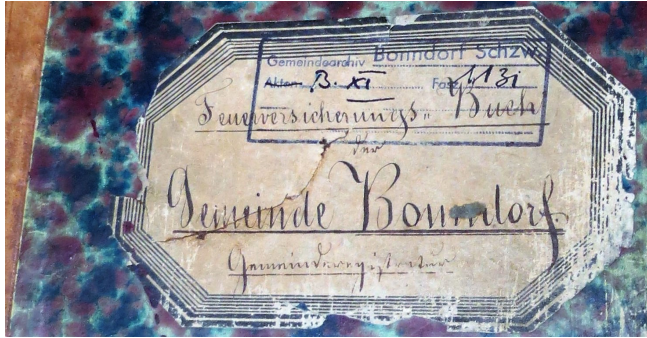 Gemeindearchiv Bonndorf Schzw.
Akten B. XI Fasz.
Feuerversicherungs- Buch
der
Gemeinde Bonndorf.
Gemeinderegistratur